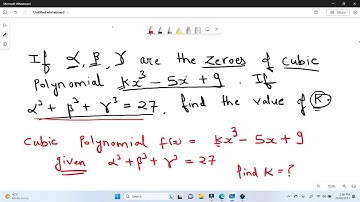 Microsoft Whiteboard
Untitled whiteboard
If α, β, γ are the zeroes of cubic
Polynomial kx³ - 5x + 9. If
α³ + β³ + γ³ = 27, find the value of K.
Cubic Polynomial f(x) = kx³ - 5x + 9
given α³ + β³ + γ³ = 27
find K = ?